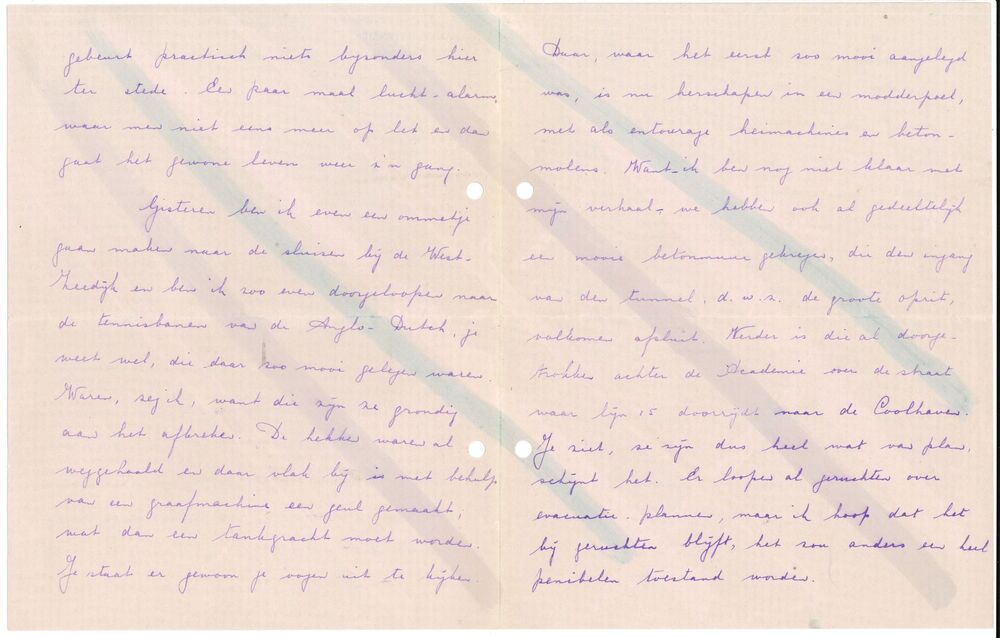 gebeurt practisch niets byzonders hier
ter stede. Een paar maal lucht-alarm,
waar men niet eens meer op let en dan
gaat het gewone leven weer z'n gang.
Gisteren ben ik even een ommetje
gaan maken naar de sluizen bij de West-
Zeedijk en ben ik zoo even doorgeloopen naar
de tennisbanen van de Anglo-Dutch, je
weet wel, die daar zoo mooi gelegen waren.
Waren, zeg ik, want die zijn ze grondig
aan het afbreken. De hekken waren al
weggehaald en daar vlak bij is met behulp
van een graafmachine een geul gemaakt,
wat dan een tankgracht moet worden.
Je staat er gewoon je oogen uit te kijken.
Daar, waar het eerst zoo mooi aangelegd
was, is nu herschapen in een modderpoel,
met als entourage heimachines en beton-
molens. Want - ik ben nog niet klaar met
mijn verhaal - we hebben ook al gedeeltelijk
een mooie betonmuur gekregen, die den ingang
van den tunnel, d.w.z. de groote oprit,
volkomen afsluit. Verder is die al doorge-
trokken achter de Academie over de straat
waar lijn 15 doorrijdt naar de Coolhaven.
Je ziet, ze zijn dus heel wat van plan,
schijnt het. Er loopen al geruchten over
evacuatie-plannen, maar ik hoop dat het
bij geruchten blijft, het zou anders een heel
penibelen toestand worden.